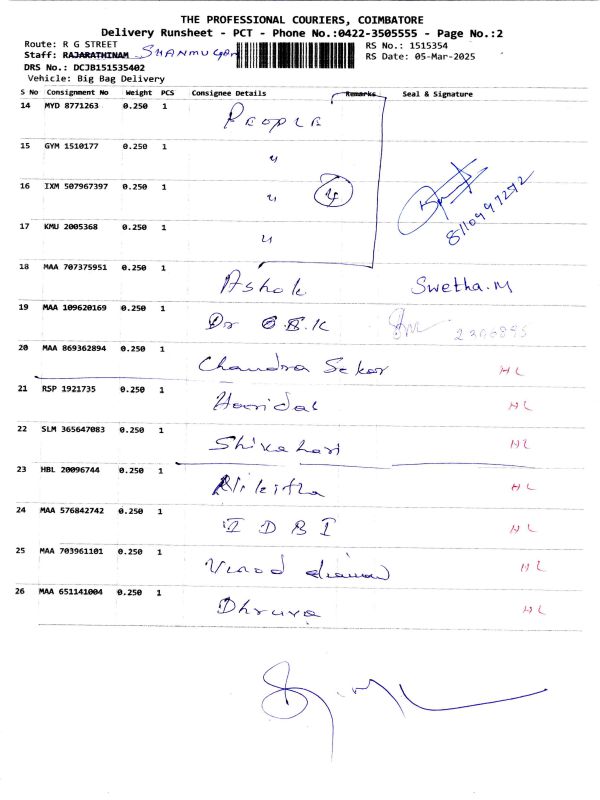 THE PROFESSIONAL COURIERS, COIMBATORE
Delivery Runsheet - PCT - Phone No.:0422-3505555 - Page No.:2
Route: R G STREET
RS No.: 1515354
Staff: RAJARATHINAM SHANMUGAN
RS Date: 05-Mar-2025
DRS No.: DCJB151535402
Vehicle: Big Bag Delivery
S No Consignment No Weight PCS Consignee Details Remarks Seal & Signature
14 MYD 8771263 0.250 1 PEOPLE
15 GYM 1510177 0.250 1 "
16 IXM 507967397 0.250 1 " 4
17 KMU 2005368 0.250 1 "
18 MAA 707375951 0.250 1 Ashok Swetha.M
19 MAA 109620169 0.250 1 Dr
20 MAA 869362894 0.250 1 Chandra Sekar HL
21 RSP 1921735 0.250 1 HL
22 SLM 365647083 0.250 1 HL
23 HBL 20096744 0.250 1 Nikitha HL
24 MAA 576842742 0.250 1 IDBI HL
25 MAA 703961101 0.250 1 Vinod HL
26 MAA 651141004 0.250 1 Dhruva HL